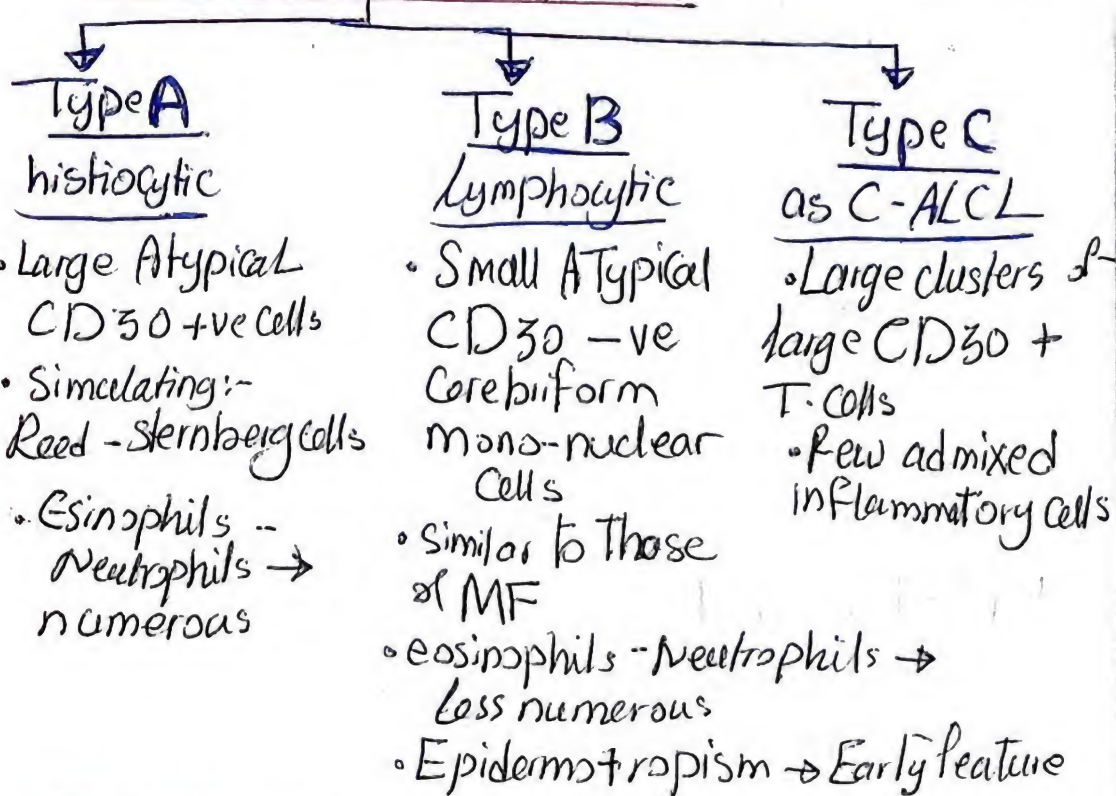 Type A
histiocytic
• Large Atypical
CD30 +ve cells
• Simulating:-
Reed - Sternberg cells
• Esinophils --
Neutrophils →
numerous
Type B
Lymphocytic
• Small ATypical
CD30 -ve
Corebriform
mono-nuclear
Cells
• Similar to Those
of MF
• eosinophils -- Neutrophils →
Less numerous
• Epidermotropism → Early feature
Type C
as C-ALCL
• Large clusters of
large CD30 +
T. cells
• Few admixed
inflammatory cells